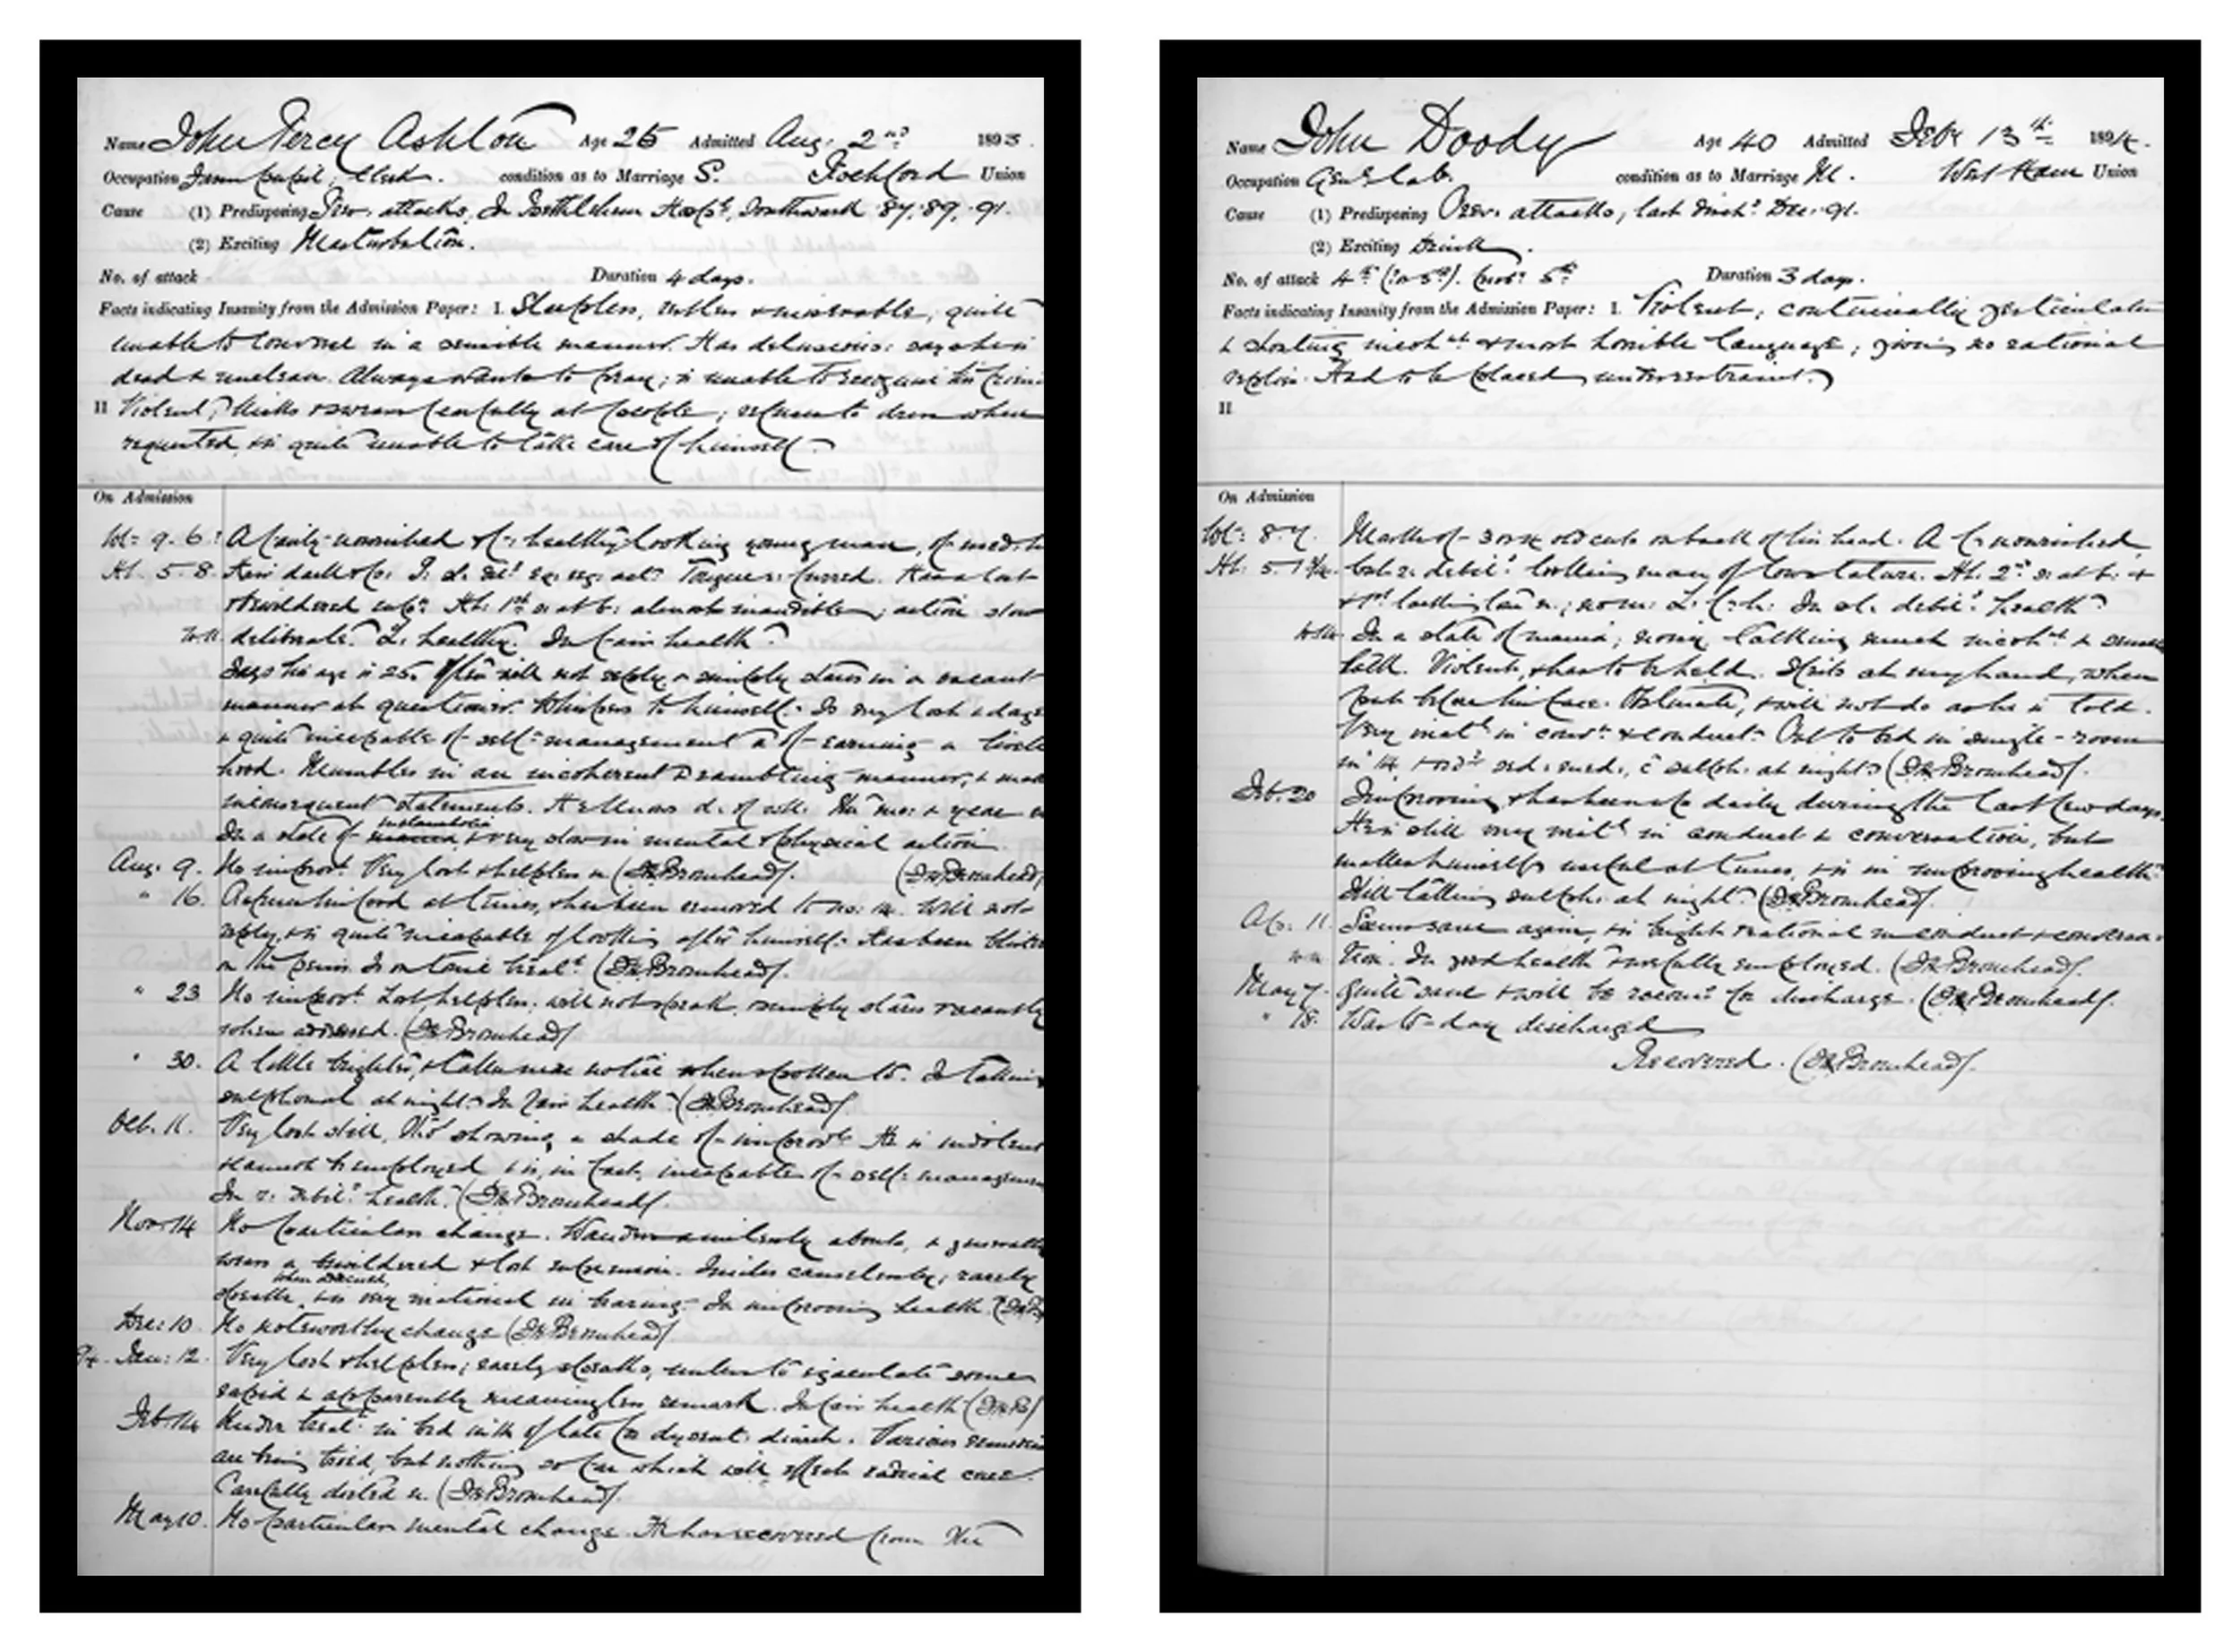 Name John Percy Ashton Age 25 Admitted Aug. 2nd 1893.
Occupation Farm pupil; Clerk. condition as to Marriage S. Rochford Union
Cause (1) Predisposing Prev. attacks, In Bethlehem Hosp., Southwark '87, '89, '91.
(2) Exciting Masturbation.
No. of attack Duration 4 days.
Facts indicating Insanity from the Admission Paper: I. Sleepless, restless & miserable, quite
unable to converse in a sensible manner. Has delusions: says he is
dead & unclean. Always wants to pray; is unable to recognise his
II Violent, kicks & swears fearfully at people; refuses to dress when
requested, & is quite unable to take care of himself.
On Admission
Wt: 9. 6. A fairly-nourished & healthy-looking young man, of
Ht. 5. 8. hair dark Tongue furred. Has a lost
bewildered Ht. 1st almost inaudible; action slow
deliberate. L. healthy. In fair health.
Says his age is 25. Often will not reply, or simply stares in a vacant
manner at questioner. Whispers to himself. Is very lost &
& quite incapable of self-management or of earning a
hood. Mumbles in an incoherent & rambling manner, &
inconsequent statements. He knows d. of wk. the mo: & year
In a state of melancholia, & very slow in mental & physical action.
Aug: 9. No improvt. Very lost & helpless (Bromhead).
(Bromhead)
" 16. Refuses his food at times, & has been removed to no: 14. Will not
reply, & is quite incapable of looking after himself. Has been
on the penis. Is on tonic treatt. (Bromhead).
" 23 No improvt. Lost, helpless; will not speak, simply stares vacantly
when addressed. (Bromhead)
" 30. A little brighter, & takes more notice when spoken to. Is taking
sulphonal at night. In fair health. (Bromhead)
Oct. 11. Very lost still, tho' showing a shade of improvt. He is indolent
& cannot be employed & is, in fact, incapable of self-
In r. debil. health. (Bromhead).
Nov: 14 No particular change. Wanders aimlessly about, &
wears a bewildered & lost expression. Smiles causelessly; rarely
speaks when addressed, & is very irrational in bearing. In improving health.
Dec: 10 No noteworthy change (Bromhead)
94. Jan: 12. Very lost & helpless; rarely speaks, unless to ejaculate some
rapid & apparently meaningless remark. In fair health
Feb: 14 Under treatt. in bed till of late for dysent. diarrh. Various
are being tried, but nothing so far which will effect radical cure.
Carefully dieted (Bromhead).
May 10. No particular mental change. He has recovered from the
Name John Doody Age 40 Admitted Feby 13th 1894.
Occupation Genl. lab. condition as to Marriage M. West Ham Union
Cause (1) Predisposing Prev. attacks, last disch. Dec. 91.
(2) Exciting Drink.
No. of attack 4th (? or 5th). (prob. 5th Duration 3 days.
Facts indicating Insanity from the Admission Paper: I. Violent, continually gesticulates
& shouting incoht. & most horrible language; giving no rational
replies. Had to be placed under restraint.
II
On Admission
Wt: 8. 7. Marks of 3 or 4 old cuts on back of his head. A f. nourished,
Ht: 5. 1 3/4. debil. looking man of low stature. Ht. 2nd
In debil. health.
In a state of mania; noisy, talking much incoht. &
talk. Violent, & has to be held. Spits at my hand, when
put before his face. Obstinate, & will not do as he is told.
Very irratl. in convt. & conduct. Put to bed in single-room
in 14, & ordd. c̄ sulph. at night. (Bromhead).
Feb. 20 Improving & has been up daily during the last few days.
He is still very irratl. in conduct & conversation, but
makes himself useful at times, & is in improving health.
Still taking sulph. at night. (Bromhead).
Ap: 11. Seems sane again, & is bright & rational in conduct &
tion. In good health & usefully employed. (Bromhead).
May 7. Quite sane & will be recomd. for discharge. (Bromhead).
" 18. Was to-day discharged
Recovered. (Bromhead).